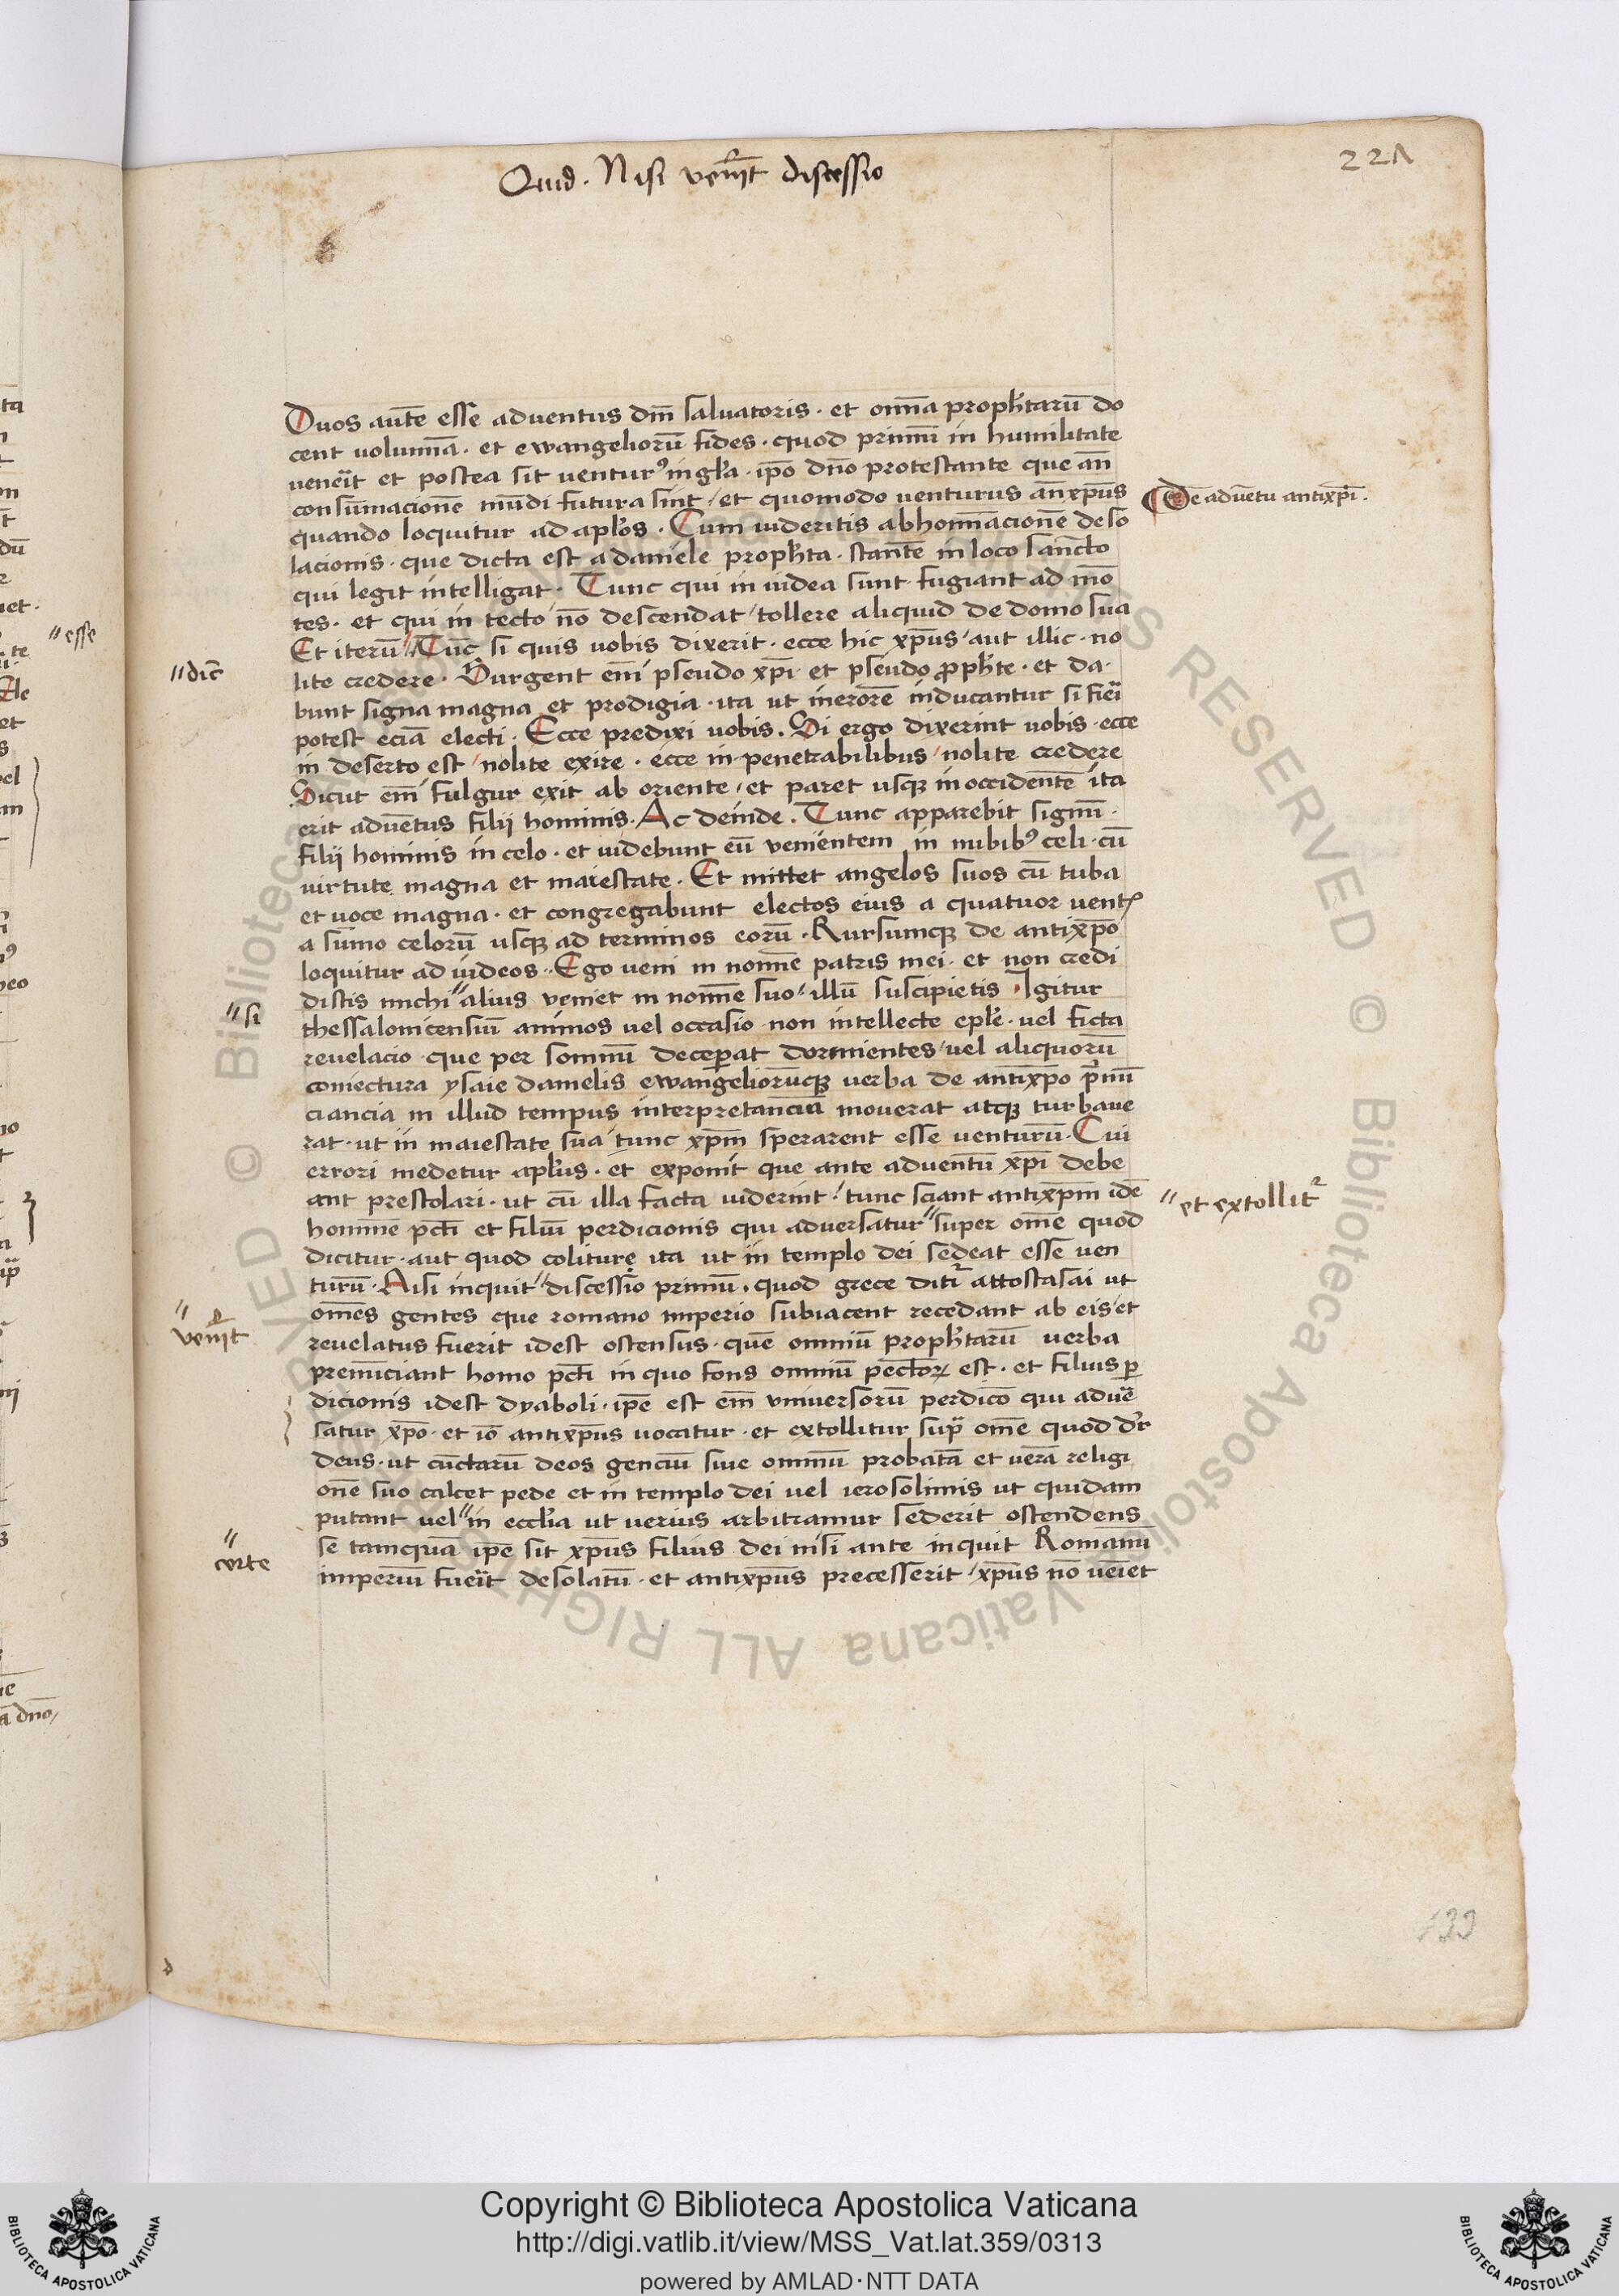 Quid. Nisi ven̄it discessio
221
Duos aūte esse aduentus dn̄i saluatoris · et omīa proph̄tarū do
cent uolumīa · et ewangeliorū fides · quod primū in humilitate
uene͛it et postea sit ventur⁹ in gl̄ia · ip̄o dn̄o protestante que an̄
consūmacionē mūdi futura sint / et quomodo venturus an̄xp̄us
De aduētu antixp̄i.
quando loquitur ad apl̄os · Cum uideritis abhomīacionē deso
lacionis · que dicta est a daniele proph̄ta · stantē in loco sancto
qui legit intelligat · Tunc qui in iudea sunt fugiant ad mō
tes · et qui in tecto / nō descendat / tollere aliquid de domo sua
Et iterū // Tūc si quis uobis dixerit · ecce hic xp̄us / aut illic · no
//dic̄
lite credere · Surgent em̄ pseudo xp̄i · et pseudo ꝓph̄te · et da ·
bunt signa magna et prodigia · ita ut in erorē inducantur si fie͛i
potest eciā electi · Ecce predixi uobis. Si ergo dixerint uobis · ecce
in deserto est / nolite exire · ecce in penetrabilibus / nolite credere
Sicut em̄ fulgur exit ab oriente / et paret usqꝫ in occidentē ita
erit aduētus filij hominis · Ac deinde. Tunc apparebit signū ·
filij hominis in celo · et uidebunt eū venientem in nubib⁹ celi · cū
uirtute magna et maiestate · Et mittet angelos suos cū tuba
et uoce magna · et congregabunt electos eius a quatuor uentꝭ
a sūmo celorū usqꝫ ad terminos eorū · Rursumqꝫ de antixp̄o
loquitur ad iudeos · Ego veni in nomīe patris mei · et non credi
distis michi // alius veniet in nomīe suo / illū suscipietis · Igitur
//si
thessalonicensiū animos uel occasio non intellecte epl̄e · uel ficta
reuelacio · que per somnū deceperat dormientes / uel aliquorū
coniectura ysaie danielis ewangeliorūqꝫ uerba de antixp̄o p̄nū
ciancia in illud tempus interpretanciā mouerat atqꝫ turbaue
rat · ut in maiestate sua tunc xp̄m sperarent esse venturū · Cui
errori medetur apl̄us · et exponit que ante aduentū xp̄i debe
ant prestolari · ut cū illa facta uiderint / tunc sciant antixp̄m idē
homīne pct̄i et filiū perdicionis qui aduersatur // super om̄e quod
//et extollit᷑
dicitur · aut quod coliture ita ut in templo dei sedeat esse uen
turū · Nisi inquit // discessio primū · quod grece dit᷑ attostasai ut
//ven̄it
om̄es gentes que romano imperio subiacent recedant ab eis / et
reuelatus fuerit idest ostensus · quē omniū proph̄tarū verba
prenūciant homo pct̄i in quo fons omniū pecctoꝝ est · et filius ꝑ
dicionis idest dyaboli · ip̄e est em̄ vniuersorū perdicō qui aduē
satur xp̄o · et iō antixp̄us uocatur · et extollitur sup̄ om̄e quod dr̄
deus · ut cūctarū deos genciū siue omniū probatā et uerā religi
onē suo calcet pede et in templo dei uel ierosolimis ut quidam
putant uel // in eccl̄ia ut uerius arbitramur sederit ostendens
//certe
se tamquā ip̄e sit xp̄us filius dei nisi ante inquit Romanū
imperiū fue͛it desolatū · et antixp̄us precesserit / xp̄us nō ueniet
133
//esse
Copyright © Biblioteca Apostolica Vaticana
http://digi.vatlib.it/view/MSS_Vat.lat.359/0313
powered by AMLAD·NTT DATA
BIBLIOTECA APOSTOLICA VATICANA
BIBLIOTECA APOSTOLICA VATICANA